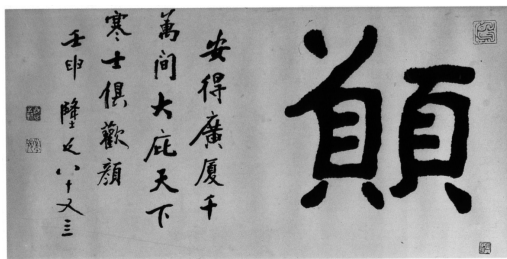 願
安得廣厦千
萬间大庇天下
寒士俱歡顔
壬申 隆延八十又三